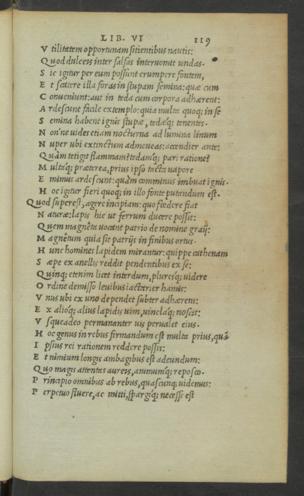 LIB. VI 119
V tilitatem opportunam sitientibus nautis:
Q uod dulceis inter salsas interuomit undas.
S ic igitur per eum possunt erumpere fontem,
E t scatere illa foras in stupam semina: quæ cum
C onueniunt: aut in teda cum corpora adhærent:
A rdescunt facile extemplo: quia multa quoq; in se
S emina habent ignis stupæ, tedæq; tenentes.
N on'ne uides etiam nocturna ad lumina linum
N uper ubi extinctum admoueas: accendier ante:
Q uàm tetigit flammam: tedamq; pari ratione?
M ultaq; præterea, prius ipso tacta uapore
E minus ardescunt: quàm comminus imbuat ignis.
H oc igitur fieri quoq; in illo fonte putandum est.
Quod superest, agere incipiam: quo foedere fiat
N aturæ: lapis hic ut ferrum ducere possit:
Q uem magnêta uocant patrio de nomine graij:
M agnêtum quia sit patrijs in finibus ortus.
H unc homines lapidem mirantur: quippe cathenam
S æpe ex anellis reddit pendentibus ex se:
Q uinq; etenim licet interdum, plureisq; uidere
O rdine demisso leuibus iactarier hamis:
V nus ubi ex uno dependet subter adhærens:
E x alioq; alius lapidis uim, uinclaq; noscit:
V squeadeo permananter uis peruolat eius.
H oc genus in rebus firmandum est multa prius, quã
I psius rei rationem reddere possis:
E t nimium longis ambagibus est adeundum:
Q uo magis attentas aureis, animumq; reposco.
P rincipio omnibus ab rebus, quascunq; uidemus:
P erpetuo fluere, ac mitti, spargiq; necesse est